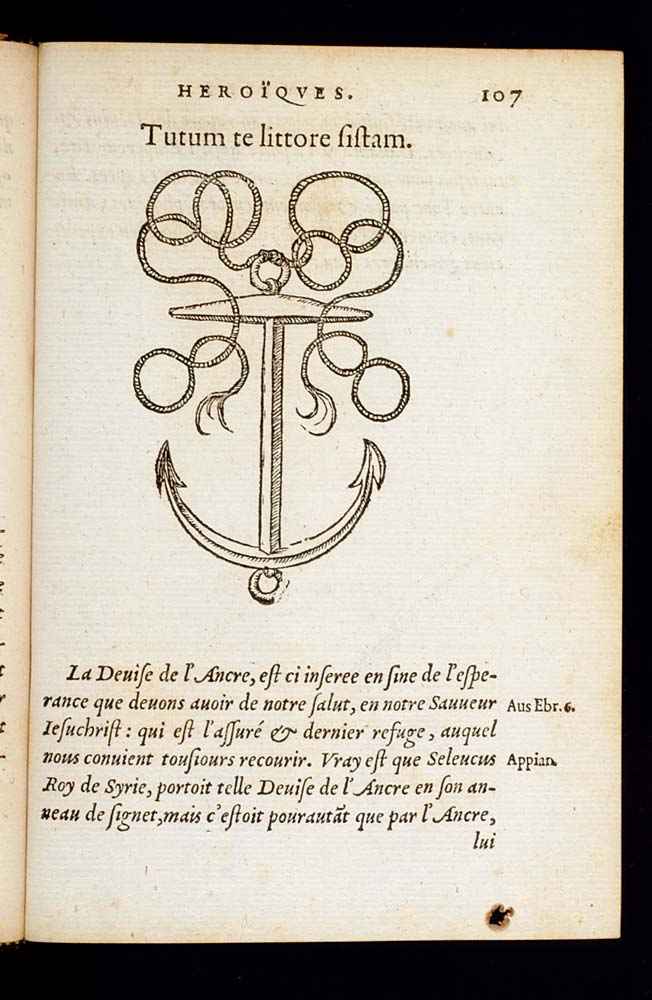 HEROÏQVES. 107
Tutum te littore ſiſtam.
La Deuiſe de l'Ancre, eſt ci inſeree en ſine de l'eſpe-
rance que deuons auoir de notre ſalut, en notre Sauueur Aus Ebr. 6.
Ieſuchriſt: qui eſt l'aſſuré & dernier refuge, auquel
nous conuient touſiours recourir. Vray eſt que Seleucus Appian.
Roy de Syrie, portoit telle Deuiſe de l'Ancre en ſon an-
neau de ſignet, mais c'eſtoit pourautãt que par l'Ancre,
lui